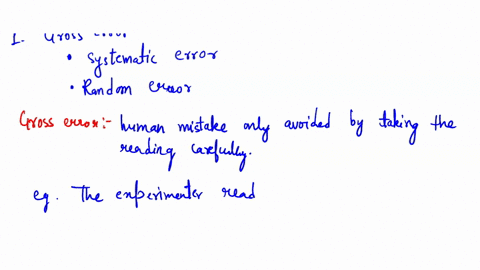 1. Gross
• Systematic error
• Random error
Gross error:- human mistake only avoided by taking the
reading carefully.
eg. The experimenter read